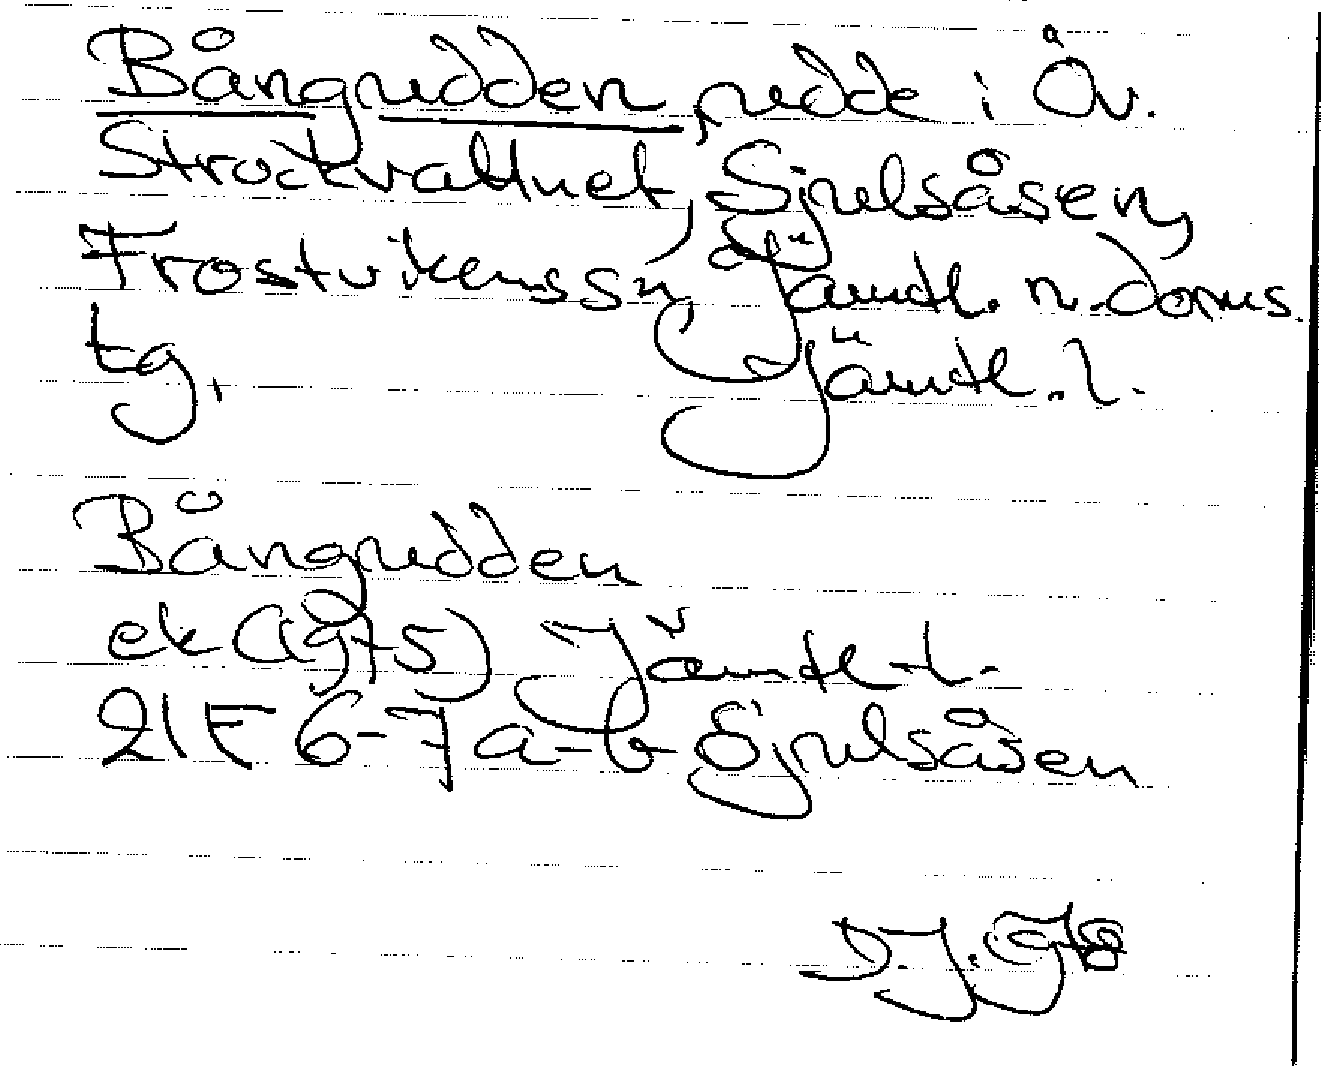 Bångudden, udde i Öv.
Strockvattnet, Sjulsåsen,
Frostvikens sn, Jämtl. n. doms.
tg, Jämtl. l.
Bångudden
ek (A9f5) Jämtl l.
21E 6-7 a-b Sjulsåsen
D.J. 978